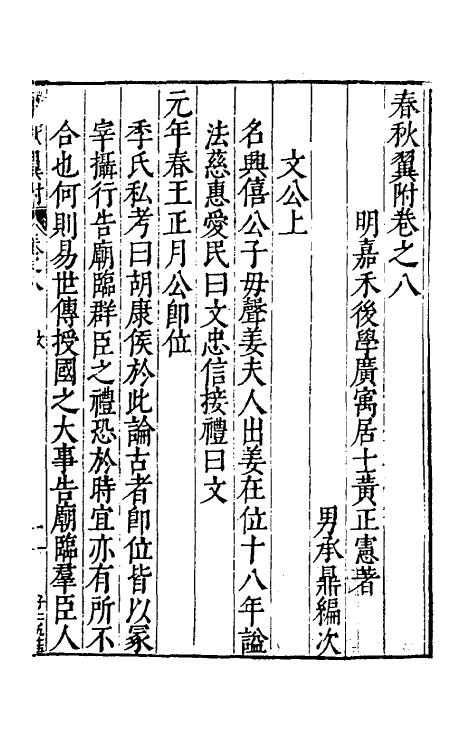 春秋翼附卷之八
明嘉禾後學廣寓居士黃正憲著
男承鼎編次
文公上
名興僖公子毋聲姜夫人出姜在位十八年謚
法慈惠愛民曰文忠信接禮曰文
元年春王正月公卽位
季氏私考曰胡康侯於此論古者卽位皆以冢
宰攝行告廟臨群臣之禮恐於時宜亦有所不
合也何則易世傳授國之大事告廟臨羣臣人